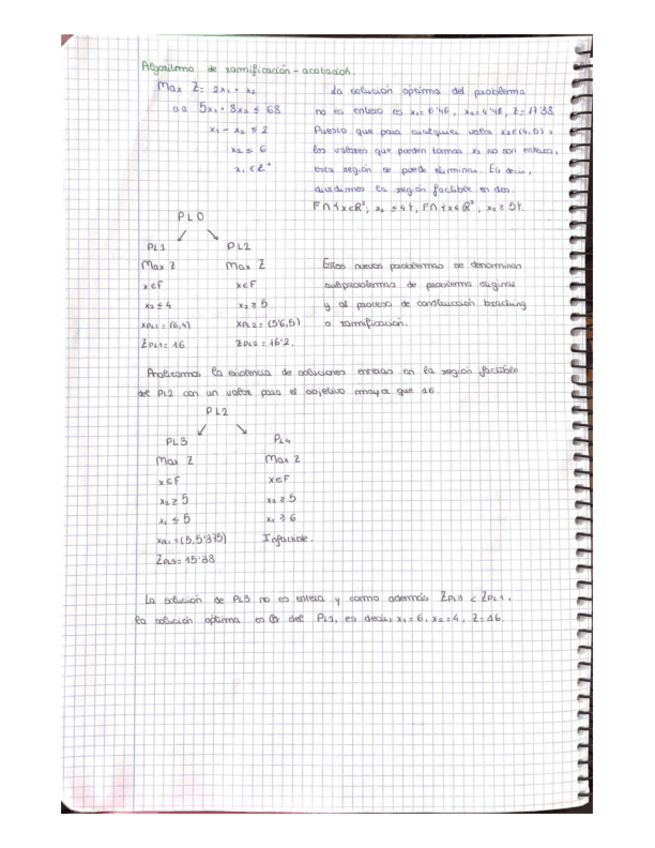 Algoritmo de ramificación - acotación.
Max Z = 2x₁ + x₂
s.a 5x₁ + 8x₂ ≤ 68
x₁ - x₂ ≤ 2
x₂ ≤ 6
xᵢ ∈ Z⁺
La solución óptima del problema
no es entera es x₁ = 6'46, x₂ = 4'46, Z = 17'38
Puesto que para cualquier valor x₂ ∈ (4,5),
los valores que pueden tomar x₂ no son enteros,
esta región se puede eliminar. Es decir,
dividimos la región factible en dos.
F ∩ {x ∈ R², x₂ ≤ 4}, F ∩ {x ∈ R², x₂ ≥ 5}.
PL0
PL1 PL2
Max Z Max Z
x ∈ F x ∈ F
x₂ ≤ 4 x₂ ≥ 5
xPL1 = (6,4) xPL2 = (5'6,5)
ZPL1 = 16 ZPL2 = 16'2.
Estos nuevos problemas se denominan
subproblemas de problema original
y al proceso de construcción
o ramificación.
Analizamos la existencia de soluciones enteras en la región factible
del PL2 con un valor para el objetivo mayor que 16.
PL2
PL3 PL4
Max Z Max Z
x ∈ F x ∈ F
x₂ ≥ 5 x₂ ≥ 5
x₁ ≤ 5 x₁ ≥ 6
= (5,5'375) Infactible.
ZPL3 = 15'38
La solución de PL3 no es entera y como además ZPL3 < ZPL1,
la solución óptima es la del PL1, es decir, x₁ = 6, x₂ = 4, Z = 16.